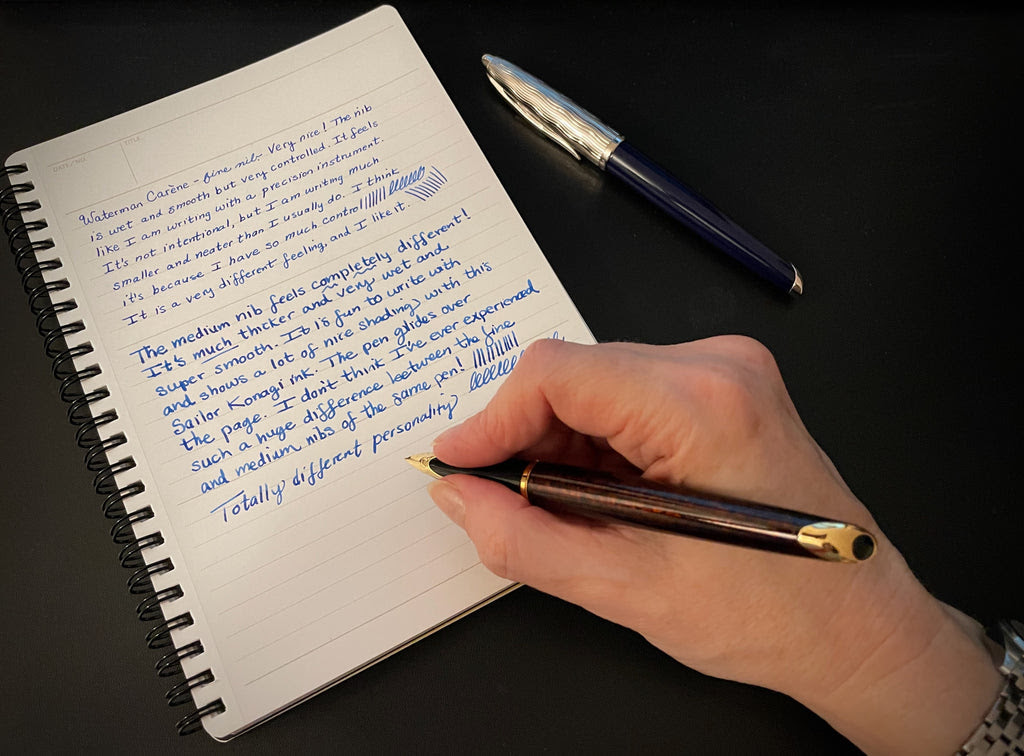 DATE/NO.
TITLE
Waterman Carène - fine nib - Very nice! The nib
is wet and smooth but very controlled. It feels
like I am writing with a precision instrument.
It's not intentional, but I am writing much
smaller and neater than I usually do. I think
it's because I have so much control
It is a very different feeling, and I like it.
The medium nib feels completely different!
It's much thicker and very wet and
super smooth. It is fun to write with
and shows a lot of nice shading with this
Sailor Konagi ink. The pen glides over
the page. I don't think I've ever experienced
such a huge difference between the fine
and medium nibs of the same pen!
Totally different personality